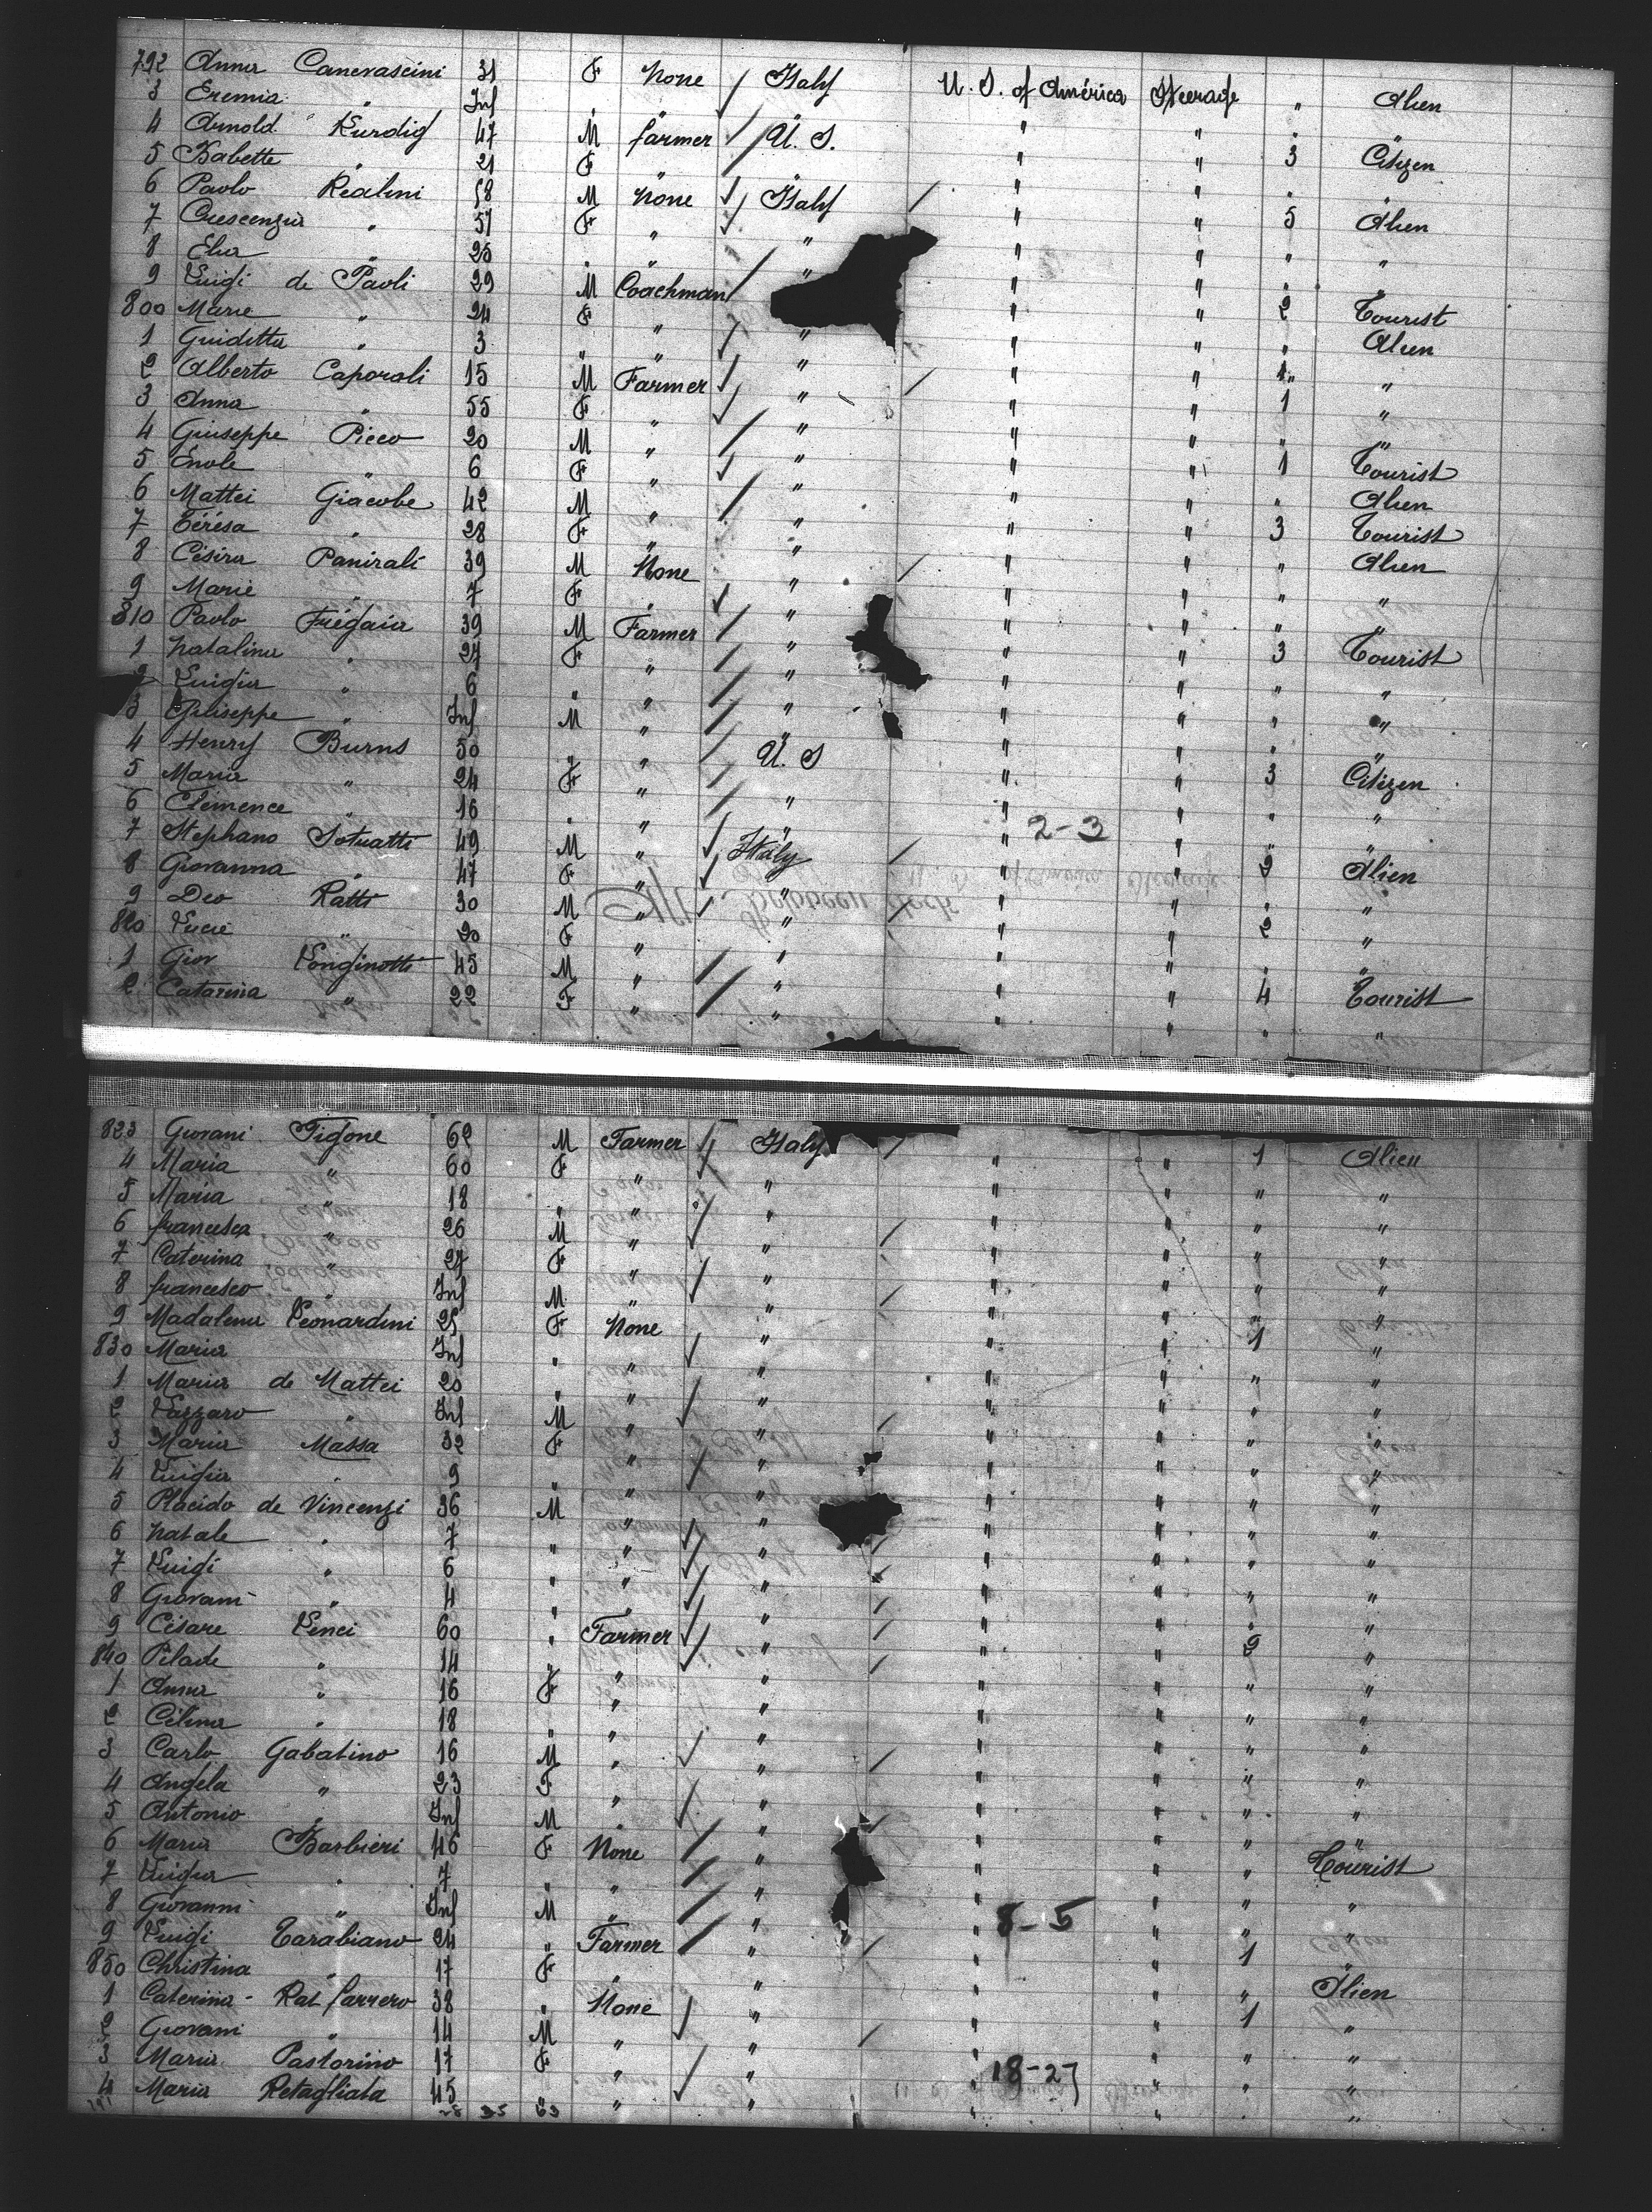 792 Anna Canevascini 31 F None Italy U. S. of América Steerage " Alien
3 Eremia " Inf " " " " " " "
4 Arnold Kurdig 47 M farmer U. S. " " 3 Citizen
5 Babette " 21 F " " " " " "
6 Paolo Realini 58 M None Italy " " 5 Alien
7 Crescenzia " 57 F " " " " " "
8 Elia " 25 " " " " " " "
9 Luigi de Paoli 29 M Coachman " " 2 Tourist
800 Marie " 24 F " " " " " Alien
1 Guiditta " 3 " " " " " " "
2 Alberto Caporali 15 M Farmer " " " 1 "
3 Anna " 55 F " " " " " "
4 Giuseppe Picco 20 M " " " " 1 Tourist
5 Enole " 6 F " " " " " Alien
6 Mattei Giacobe 42 M " " " " 3 Tourist
7 Térésa " 28 F " " " " " Alien
8 Césira Panirali 39 M None " " " " "
9 Marie " 7 F " " " " " "
810 Paolo 39 M Farmer " " " 3 Tourist
1 Natalina " 27 F " " " " " "
2 Luigia " 6 " " " " " " "
3 Giuseppe " Inf M " " " " " "
4 Henry Burns 50 " " U. S " " 3 Citizen
5 Maria " 24 F " " " " " "
6 Clémence " 16 " " " " " " "
2-3
7 Stephano 49 M " Italy " " 2 Alien
8 Giovanna " 47 F " " " " " "
9 Deo Ratti 30 M " " " " 2 "
820 Lucie " 20 F " " " " " "
1 Giov Longinotti 45 M " " " " 4 Tourist
2 Catarina " 22 F " " " " " "
823 Giovani Figone 62 M Farmer Italy " " 1 Alien
4 Maria " 60 F " " " " " "
5 Maria " 18 " " " " " " "
6 francesca " 26 M " " " " " "
7 Caterina " 27 F " " " " " "
8 francesco " Inf M " " " " " "
9 Madalena Leonardini 25 F None " " " 1 "
830 Maria Inf " " " " " " "
1 Maria de Mattei 20 " " " " " " "
2 Lazzaro " Inf M " " " " " "
3 Maria Massa 32 F " " " " " "
4 Luigia " 9 " " " " " " "
5 Placido de Vincenzi 36 M " " " " " "
6 Natale " 7 " " " " " " "
7 Luigi " 6 " " " " " " "
8 Giovani " 4 " " " " " " "
9 Césare Lenci 60 " Farmer " " " 2 "
840 Pilade " 14 " " " " " " "
1 Anna " 16 F " " " " " "
2 Célina " 18 " " " " " " "
3 Carlo Gabatino 16 M " " " " " "
4 Angela " 23 F " " " " " "
5 Antonio " Inf M " " " " " "
6 Maria Barbieri 46 F None " " " " Tourist
7 Luigia " 7 " " " " " " "
8 Giovanni " Inf M " " " " " "
8-5
9 Luigi Tarabiano 24 " Farmer " " " 1 "
850 Christina " 17 F " " " " " Alien
1 Caterina Rat farrero 38 " None " " " 1 "
2 Giovani " 14 M " " " " " "
3 Maria Pastorino 17 F " " " " " "
18-27
4 Maria Retagliata 45 " " " " " " "